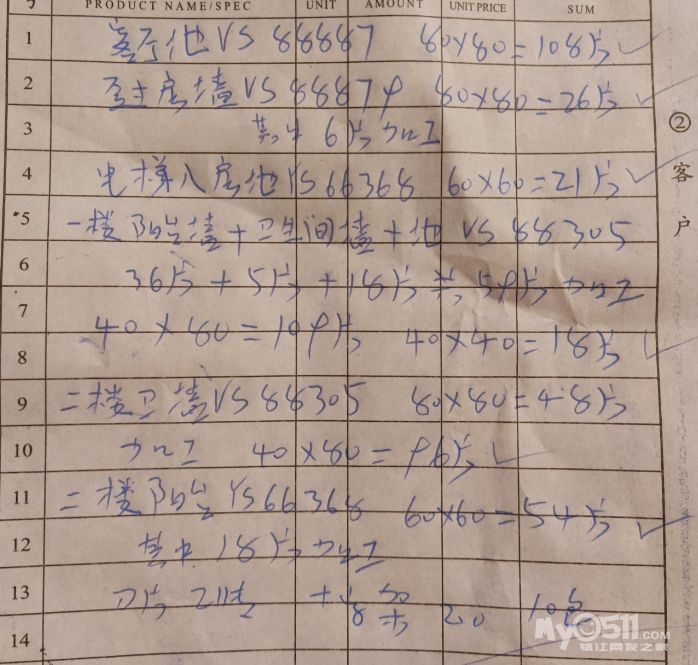 PRODUCT NAME/SPEC UNIT AMOUNT UNIT PRICE SUM
1 客厅地VS 88887 80×80=108片
2 卫生房墙VS 88879 80×80=26片
3 其中6片加工
4 电梯入房地YS66368 60×60=21片
5 一楼阳台墙+卫生间墙+地 VS 88305
6 36片+5片+18片共59片加工
7 40×80=109片 40×40=18片
8
9 二楼卫墙VS88305 80×80=48片
10 加工 40×80=96片
11 二楼阳台YS66368 60×60=54片
12 其中18片加工
13 20 10包
14
②客户
My0511.com
镇江网友之家